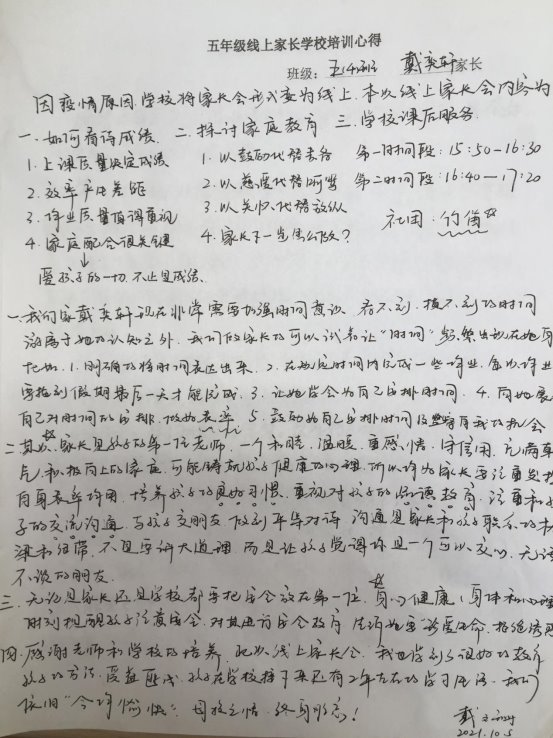 五年级线上家长学校培训心得
班级: 五(4)班 戴奕轩家长
因疫情原因,学校将家长会形式变为线上.本次线上家长会内容为
一.如何看待成绩 二.探讨家庭教育 三.学校课后服务.
1.上课质量决定成绩 1.以鼓励代替责备 第一时间段:15:50-16:30
2.效率产生差距 2.以 代替 第二时间段:16:40-17:20
3.作业质量值得重视 3.以关怀代替放纵
4.家庭配合很关键 4.家长下一步怎么做? 社团:竹笛
↓
爱孩子的一切.不止是成绩.
一.我们家戴奕轩现在非常需要加强时间意识.看不到,摸不到的时间
属于她的认知之外.我们做家长的可以试着让"时间"频繁出现在她身
1.明确的将时间表达出来. 2.在规定时间内完成一些作业,
要拖到假期最后一天才能完成. 3.让她学会为自己安排时间. 4.向她展
自己对时间的安排.做好表率 5.鼓励她自己安排时间
二.其次,家长是孩子的第一位老师.一个和睦,温暖,重感情,守信用,充满
气和积极向上的家庭.可能铸就孩子健康的心理.所以作为家长要注重发挥
自身表率作用.培养孩子的良好习惯.重视对孩子的品德教育.注重和
子的交流沟通.与孩子交朋友.做到平等对待.沟通是家长和孩子联系的
梁和纽带.不是要讲大道理.而是让孩子觉得你是一个可以交心.无话
不谈的朋友.
三.无论是家长还是学校都要把安全放在第一位.身心健康(身体和心理
时刻提醒孩子注意安全.对其进行安全教育.告诉她要珍爱生命.拒绝
四.感谢老师和学校的培养.此次线上家长会.我也学到了很好的教育
孩子的方法.受益匪浅.孩子在学校接下来还有2年左右的学习生活.我们
"今年愉快".母校之情.终身形态!
戴
2021.10.5